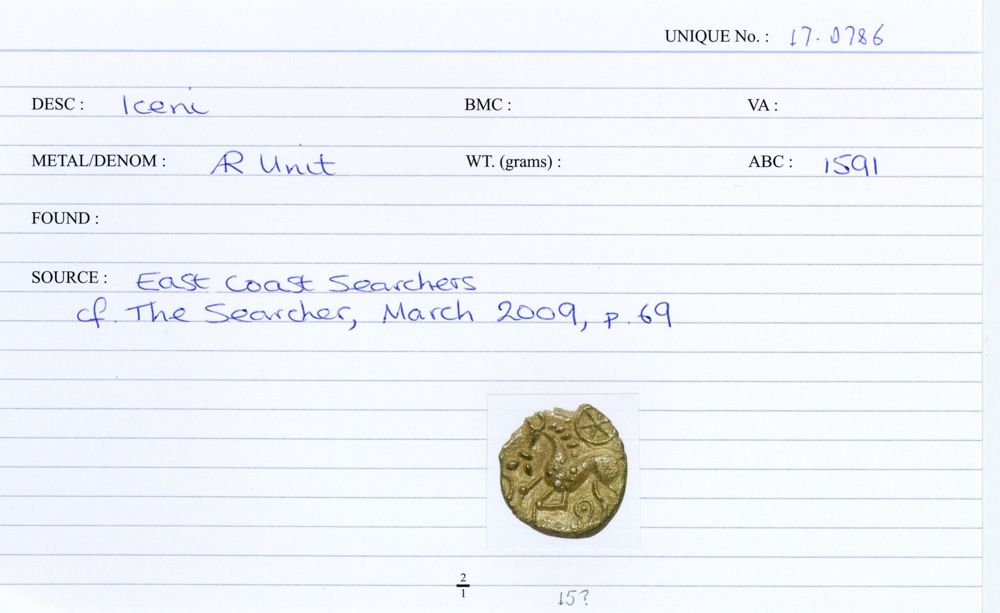 UNIQUE No. : 17.0786
DESC : Iceni BMC : VA :
METAL/DENOM : AR Unit WT. (grams) : ABC : 1591
FOUND :
SOURCE : East Coast Searchers
cf. The Searcher, March 2009, p. 69
2/1
15?